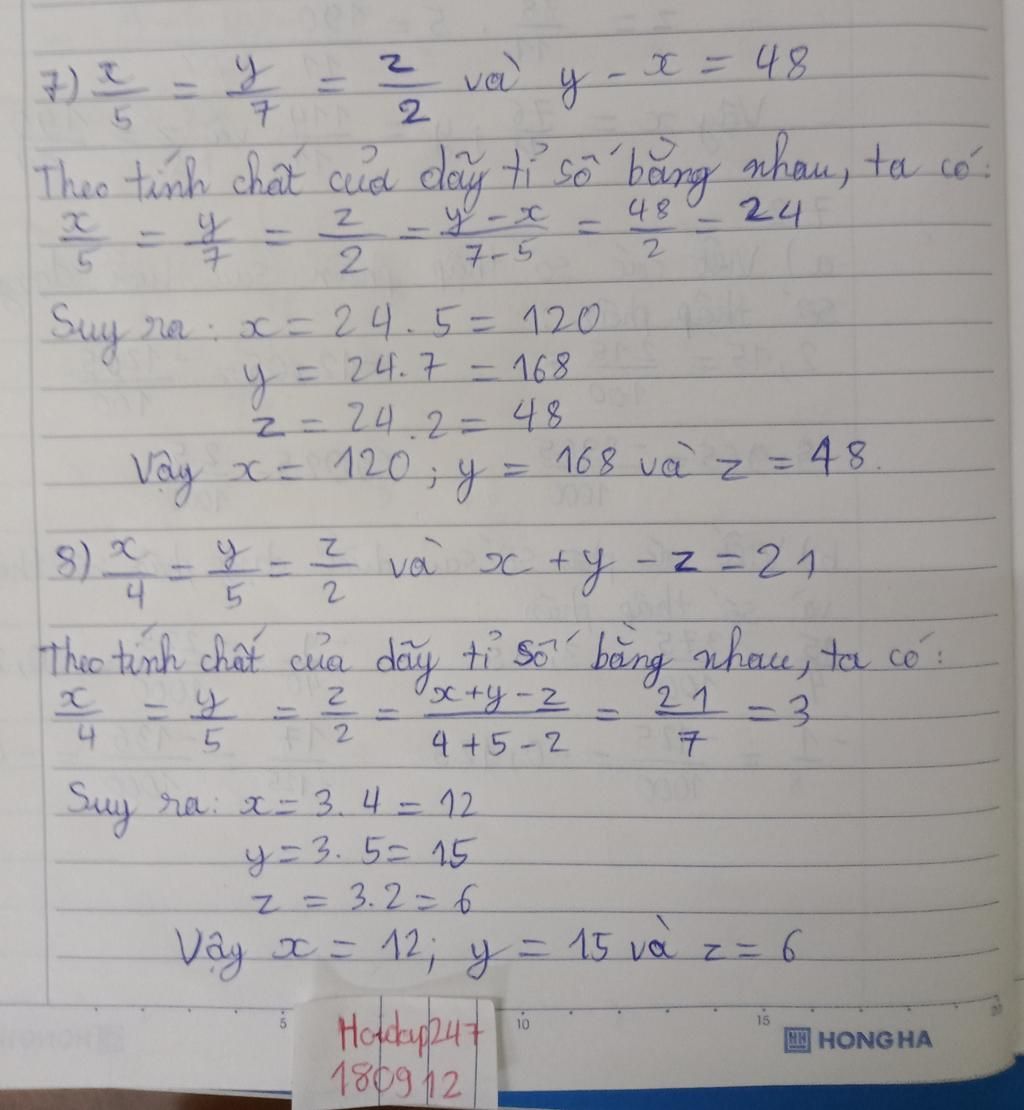 7) x/5 = y/7 = z/2 và y - x = 48
Theo tính chất của dãy tỉ số bằng nhau, ta có:
x/5 = y/7 = z/2 = y - x/7 - 5 = 48/2 = 24
Suy ra: x = 24 . 5 = 120
y = 24. 7 = 168
z = 24 . 2 = 48
Vậy x = 120 ; y = 168 và z = 48.
8) x/4 = y/5 = z/2 và x + y - z = 21
Theo tính chất của dãy tỉ số bằng nhau, ta có:
x/4 = y/5 = z/2 = x + y - z/4 + 5 - 2 = 21/7 = 3
Suy ra: x = 3. 4 = 12
y = 3. 5 = 15
z = 3.2 = 6
Vậy x = 12; y = 15 và z = 6
5 10 15 20
HH HONG HA
Hoidap247
180912